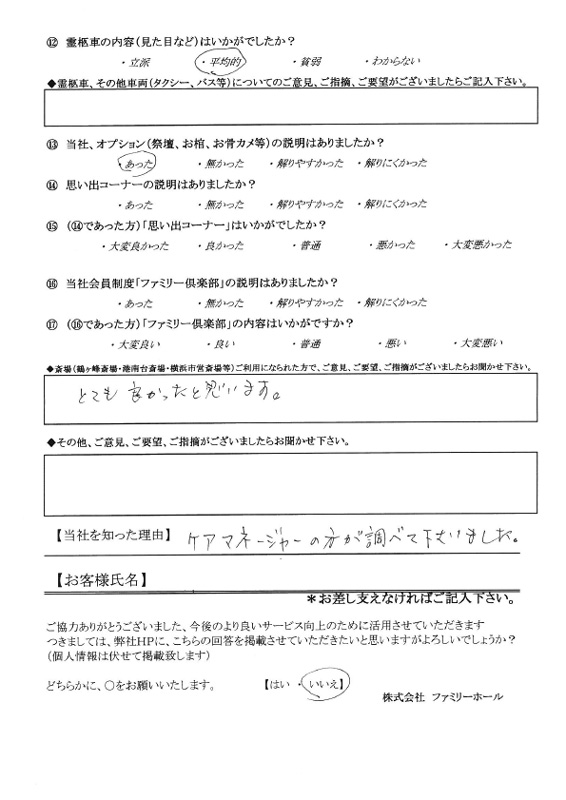 ⑫ 霊柩車の内容(見た目など)はいかがでしたか？
・立派 ・平均的 ・貧弱 ・わからない
◆霊柩車、その他車両(タクシー、バス等)についてのご意見、ご指摘、ご要望がございましたらご記入下さい。
⑬ 当社、オプション(祭壇、お棺、お骨カメ等)の説明はありましたか？
・あった ・無かった ・解りやすかった ・解りにくかった
⑭ 思い出コーナーの説明はありましたか？
・あった ・無かった ・解りやすかった ・解りにくかった
⑮ (⑭であった方)「思い出コーナー」はいかがでしたか？
・大変良かった ・良かった ・普通 ・悪かった ・大変悪かった
⑯ 当社会員制度「ファミリー倶楽部」の説明はありましたか？
・あった ・無かった ・解りやすかった ・解りにくかった
⑰ (⑯であった方)「ファミリー倶楽部」の内容はいかがですか？
・大変良い ・良い ・普通 ・悪い ・大変悪い
◆斎場(鶴ヶ峰斎場・港南台斎場・横浜市営斎場等)ご利用になられた方で、ご意見、ご要望、ご指摘がございましたらお聞かせ下さい。
とても良かったと思います。
◆その他、ご意見、ご要望、ご指摘がございましたらお聞かせ下さい。
【当社を知った理由】 ケアマネージャーの方が調べて下さいました。
【お客様氏名】
＊お差し支えなければご記入下さい。
ご協力ありがとうございました、今後のより良いサービス向上のために活用させていただきます
つきましては、弊社HPに、こちらの回答を掲載させていただきたいと思いますがよろしいでしょうか？
(個人情報は伏せて掲載致します)
どちらかに、〇をお願いいたします。 【はい ・ いいえ】
株式会社 ファミリーホール